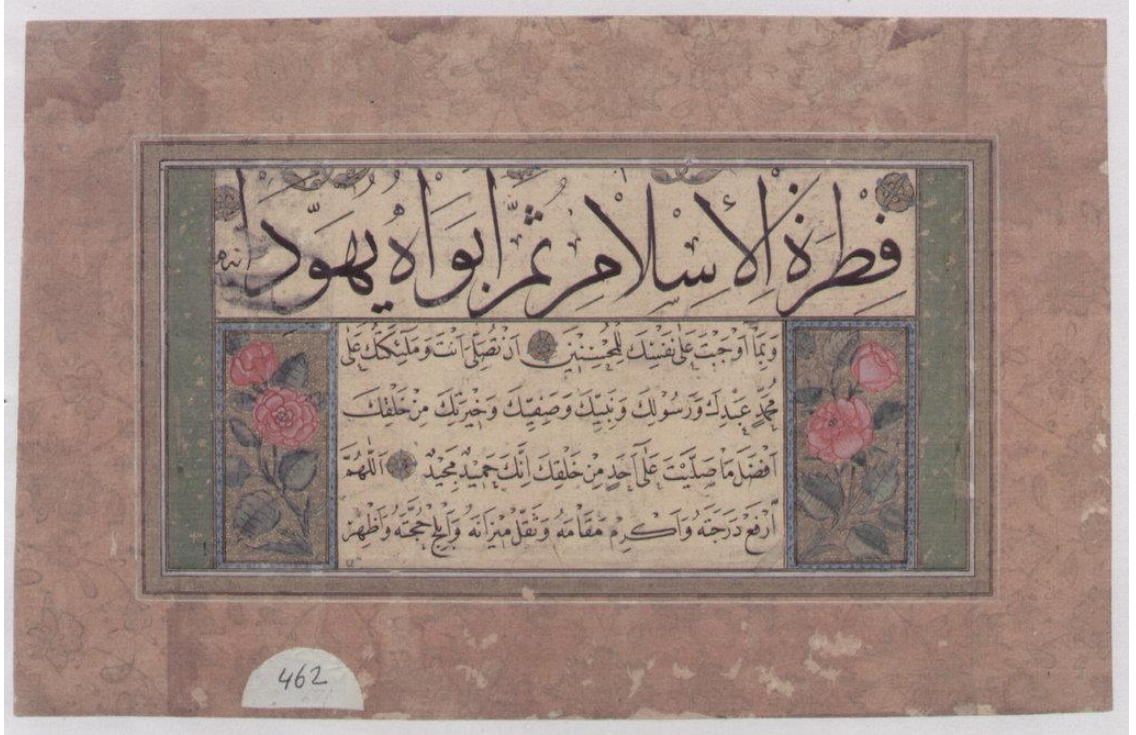 فِطْرَةِ الْإِسْلَامِ ثُمَّ أَبَوَاهُ يُهَوِّدَا
وَبِمَا أَوْجَبْتَ عَلَى نَفْسِكَ لِلْمُحْسِنِينَ أَنْ تُصَلِّيَ أَنْتَ وَمَلٰئِكَتُكَ عَلَى
مُحَمَّدٍ عَبْدِكَ وَرَسُولِكَ وَنَبِيِّكَ وَصَفِيِّكَ وَخِيَرَتِكَ مِنْ خَلْقِكَ
أَفْضَلَ مَا صَلَّيْتَ عَلَى أَحَدٍ مِنْ خَلْقِكَ إِنَّكَ حَمِيدٌ مَجِيدٌ اَللّٰهُمَّ
ارْفَعْ دَرَجَتَهُ وَأَكْرِمْ مَقَامَهُ وَثَقِّلْ مِيزَانَهُ وَأَبْلِجْ حُجَّتَهُ وَأَظْهِرْ
462